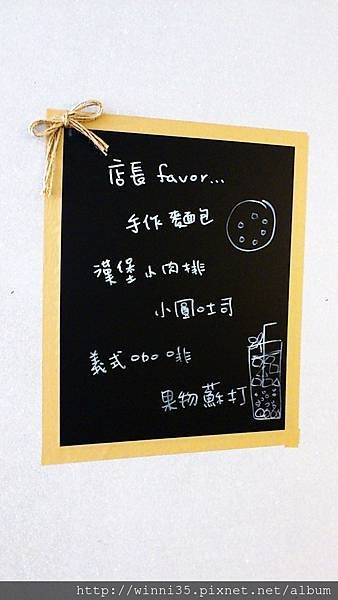 店長 favor...
手作麵包
漢堡小肉排
小圓吐司
義式咖啡
果物蘇打
http://winni35.pixnet.net/album